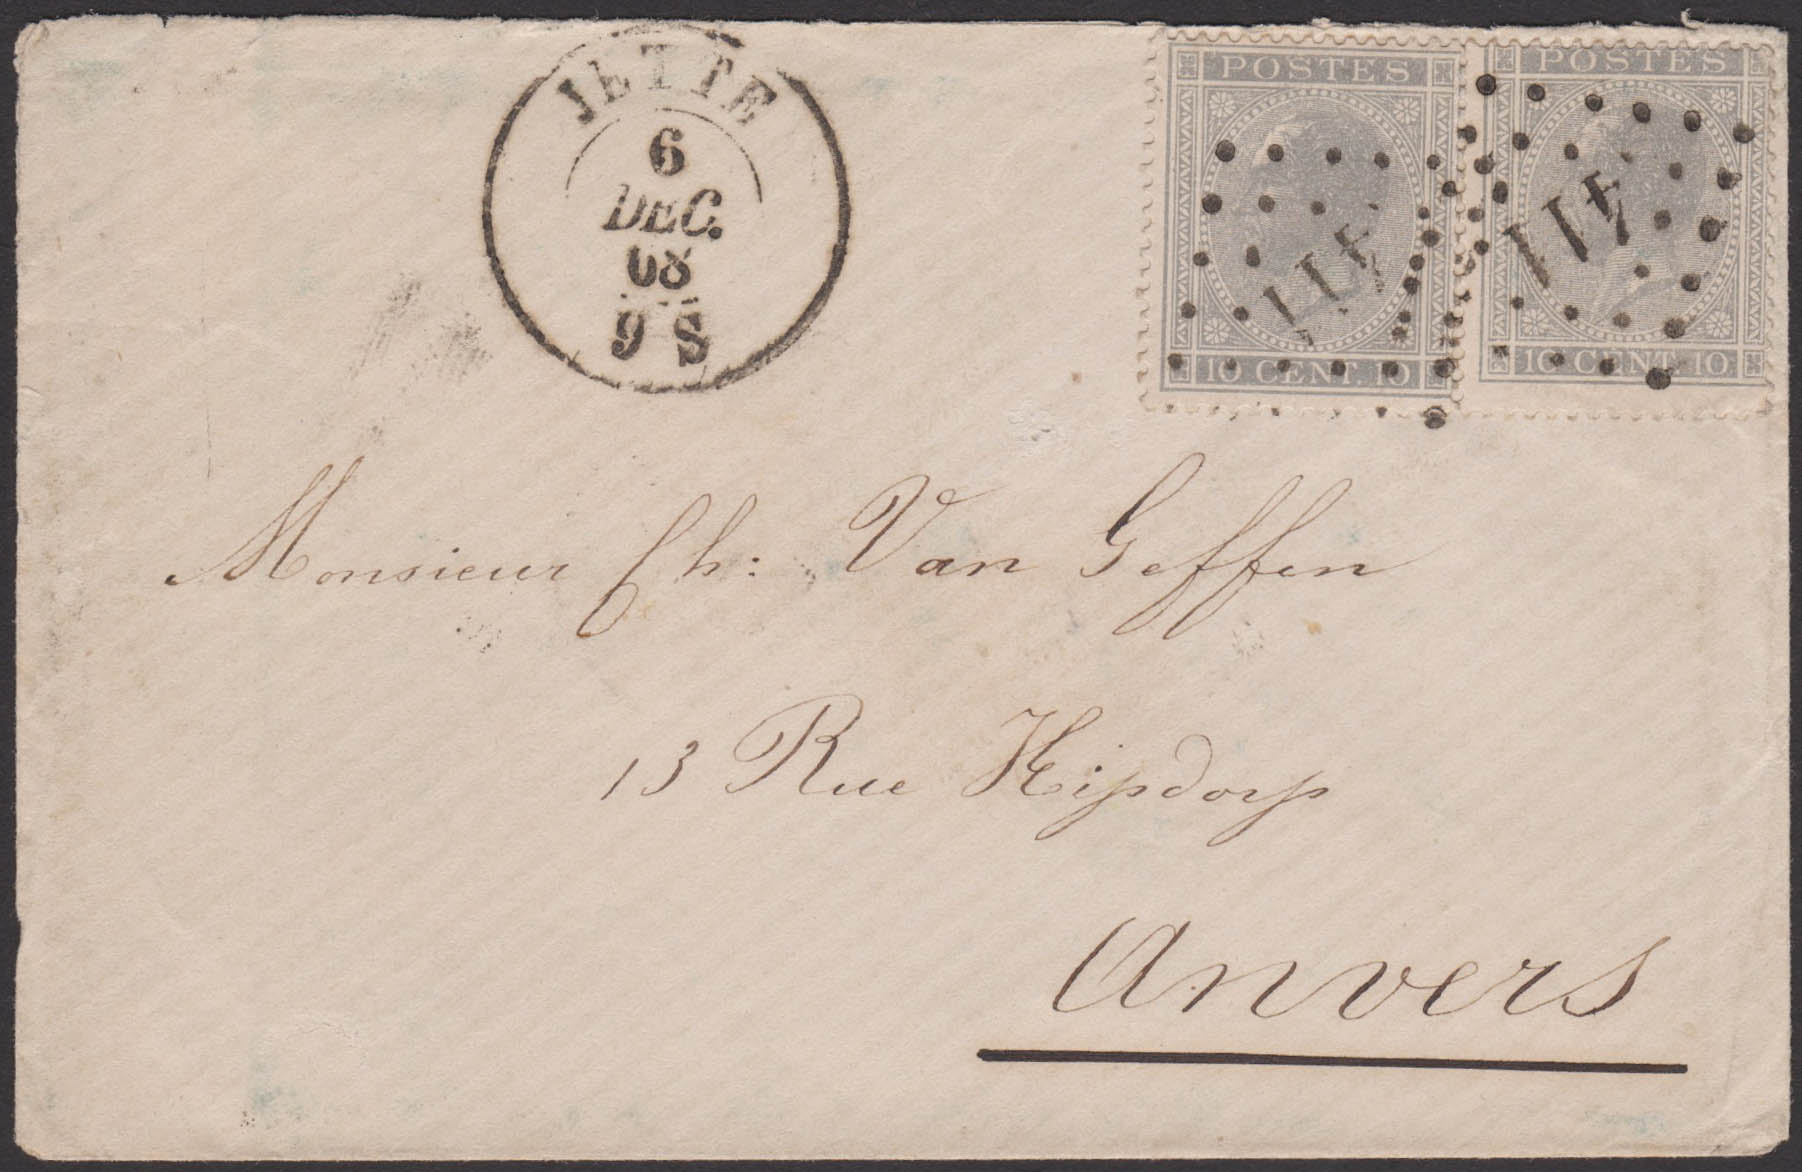 JETTE
6
DEC.
68
9 S
POSTES
10 CENT. 10
POSTES
10 CENT. 10
Monsieur Ch: Van Geffen
13 Rue Kipdorp
Anvers